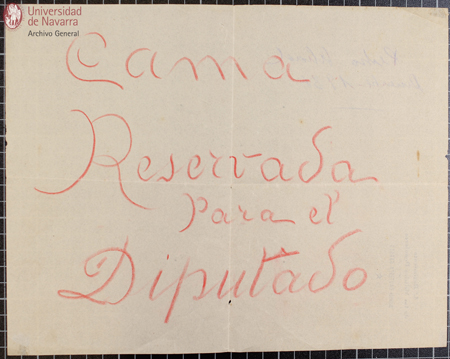 Universidad
de Navarra
Archivo General
Cama
Reservada
para el
Diputado